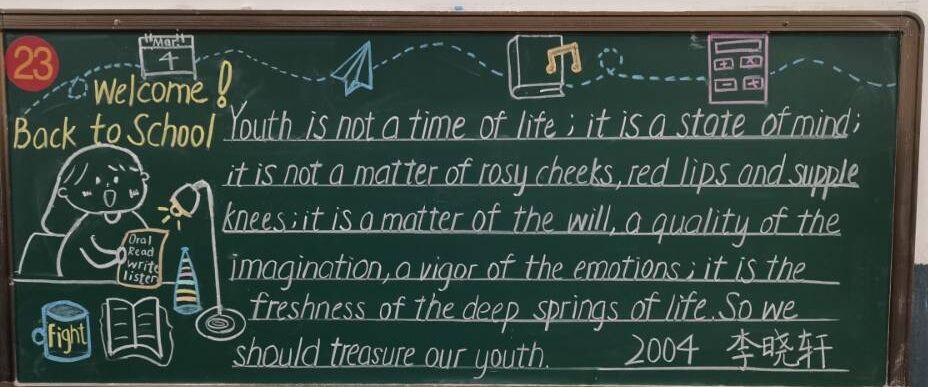 23
"Mar."
4
Welcome!
Back to School
Youth is not a time of life; it is a state of mind;
it is not a matter of rosy cheeks, red lips and supple
knees; it is a matter of the will, a quality of the
imagination, a vigor of the emotions; it is the
freshness of the deep springs of life. So we
should treasure our youth.
2004 李晓轩
Oral
Read
write
listen
fight